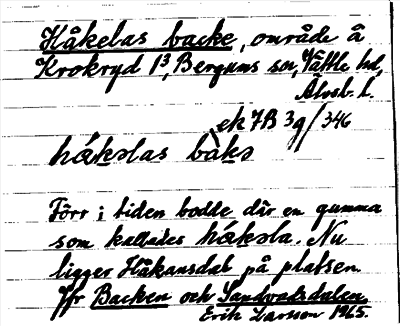 Håkelas backe, område å
Krokryd 1³, Bergums sn, Vättle hd,
Älvsb. l.
ek 7B 3g/346
håkəlas bàkə
Förr i tiden bodde där en gumma
som kallades håkəla. Nu
ligger Håkansdal på platsen.
Jfr Backen och Sandvadsdalen
Erik Larsson 1965.